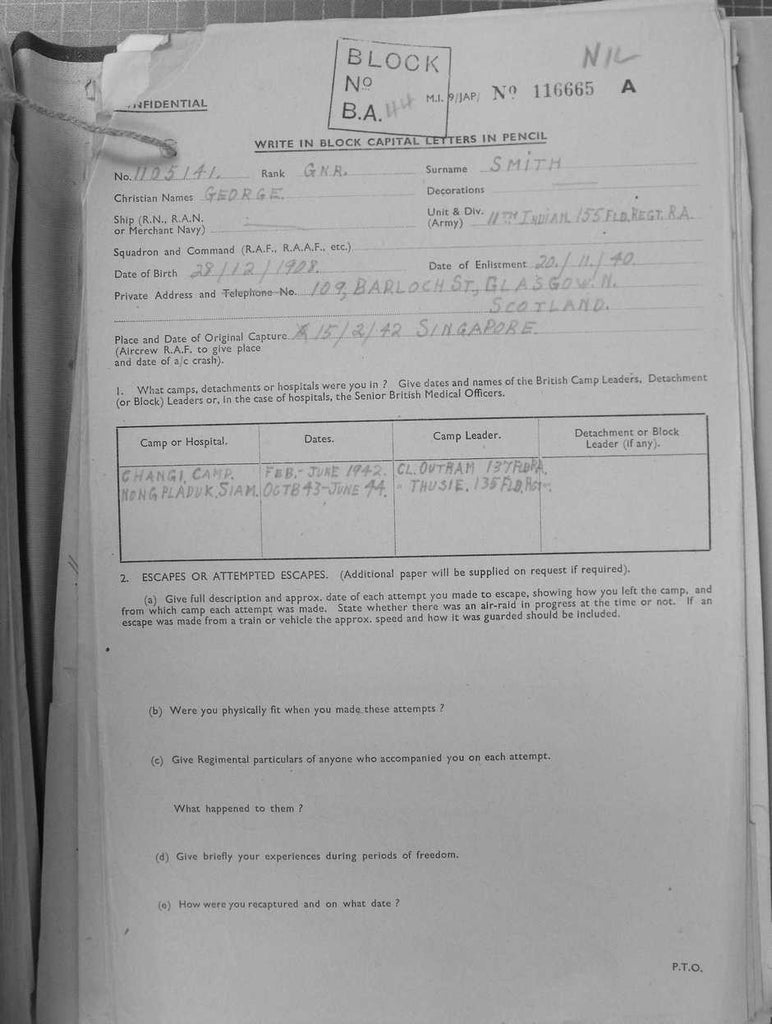 NIL
BLOCK
No
B.A. 44
M.I. 9/JAP/ No 116665 A
NFIDENTIAL
WRITE IN BLOCK CAPITAL LETTERS IN PENCIL
No. 1105141. Rank GNR. Surname SMITH
Christian Names GEORGE. Decorations
Ship (R.N., R.A.N. or Merchant Navy)
Unit & Div. (Army) 11TH INDIAN 155 FLD. REGT. R.A.
Squadron and Command (R.A.F., R.A.A.F., etc.)
Date of Birth 28/12/1908. Date of Enlistment 20/11/40
Private Address and Telephone No. 109, BARLOCH ST, GLASGOW. N.
SCOTLAND.
Place and Date of Original Capture 15/2/42 SINGAPORE.
(Aircrew R.A.F. to give place
and date of a/c crash).
1. What camps, detachments or hospitals were you in ? Give dates and names of the British Camp Leaders, Detachment
(or Block) Leaders or, in the case of hospitals, the Senior British Medical Officers.
Camp or Hospital. Dates. Camp Leader. Detachment or Block
Leader (if any).
CHANGI, CAMP. FEB.- JUNE 1942. CL. OUTRAM 137 FLD RA.
NONG PLADUK, SIAM. OCTB 43-JUNE 44. " THUSIE. 135 FLD. RGT.
2. ESCAPES OR ATTEMPTED ESCAPES. (Additional paper will be supplied on request if required).
(a) Give full description and approx. date of each attempt you made to escape, showing how you left the camp, and
from which camp each attempt was made. State whether there was an air-raid in progress at the time or not. If an
escape was made from a train or vehicle the approx. speed and how it was guarded should be included.
(b) Were you physically fit when you made these attempts ?
(c) Give Regimental particulars of anyone who accompanied you on each attempt.
What happened to them ?
(d) Give briefly your experiences during periods of freedom.
(e) How were you recaptured and on what date ?
P.T.O.